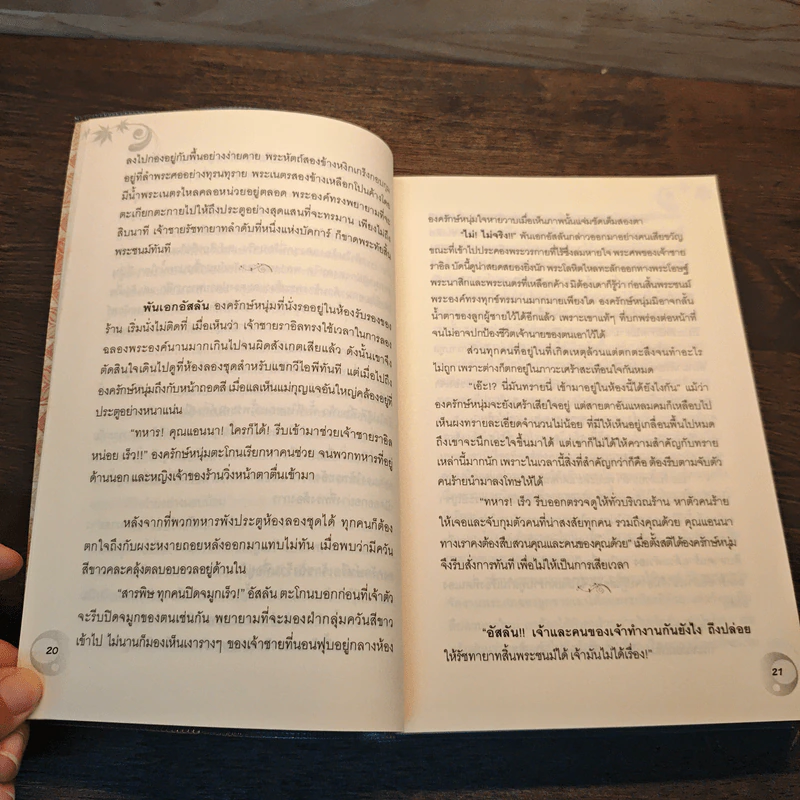 ลงไปกองอยู่กับพื้นอย่างง่ายดาย พระหัตถ์สองข้างหงิกเกร็งกอบกุม
อยู่ที่ลำพระศออย่างทุรนทุราย พระเนตรสองข้างเหลือกโปนค้างโดย
มีน้ำพระเนตรไหลคลอหน่วยอยู่ตลอด พระองค์ทรงพยายามที่จะ
ตะเกียกตะกายไปให้ถึงประตูอย่างสุดแสนที่จะทรมาน เพียงไม่ถึง
สิบนาที เจ้าชายรัชทายาทลำดับที่หนึ่งแห่งบัคการ์ ก็ขาดพระทัยสิ้น
พระชนม์ทันที
พันเอกอัสลัน องครักษ์หนุ่มที่นั่งรออยู่ในห้องรับรองของ
ร้าน เริ่มนั่งไม่ติดที่ เมื่อเห็นว่า เจ้าชายราอิลทรงใช้เวลาในการลอง
ฉลองพระองค์นานมากเกินไปจนผิดสังเกตเสียแล้ว ดังนั้นเขาจึง
ตัดสินใจเดินไปดูที่ห้องลองชุดสำหรับแขกวีไอพีทันที แต่เมื่อไปถึง
องครักษ์หนุ่มถึงกับหน้าถอดสี เมื่อแลเห็นแม่กุญแจอันใหญ่คล้องอยู่ที่
ประตูอย่างหนาแน่น
“ทหาร! คุณแอนนา! ใครก็ได้! รีบเข้ามาช่วยเจ้าชายราอิล
หน่อย เร็ว!!” องครักษ์หนุ่มตะโกนเรียกหาคนช่วย จนพวกทหารที่อยู่
ด้านนอก และหญิงเจ้าของร้านวิ่งหน้าตาตื่นเข้ามา
หลังจากที่พวกทหารพังประตูห้องลองชุดได้ ทุกคนก็ต้อง
ตกใจถึงกับผงะหงายถอยหลังออกมาแทบไม่ทัน เมื่อพบว่ามีควัน
สีขาวคละคลุ้งตลบอบอวลอยู่ด้านใน
“สารพิษ ทุกคนปิดจมูกเร็ว!” อัสลัน ตะโกนบอกก่อนที่เจ้าตัว
จะรีบปิดจมูกของตนเช่นกัน พยายามที่จะมองฝ่ากลุ่มควันสีขาว
เข้าไป ไม่นานก็มองเห็นเงารางๆ ของเจ้าชายที่นอนฟุบอยู่กลางห้อง
20
องครักษ์หนุ่มใจหายวาบเมื่อเห็นภาพนั้นแจ่มชัดเต็มสองตา
“ไม่! ไม่จริง!!” พันเอกอัสลันกล่าวออกมาอย่างคนเสียขวัญ
ขณะที่เข้าไปประคองพระวรกายที่ไร้ซึ่งลมหายใจ พระศพของเจ้าชาย
ราอิล บัดนี้ดูน่าสยดสยองยิ่งนัก พระโลหิตไหลทะลักออกทางพระโอษฐ์
พระนาสิกและพระเนตรที่เหลือกค้าง มิต้องเดาก็รู้ว่า ก่อนสิ้นพระชนม์
พระองค์ทรงทุกข์ทรมานมากมายเพียงใด องครักษ์หนุ่มมิอาจกลั้น
น้ำตาของลูกผู้ชายไว้ได้อีกแล้ว เพราะเขาแท้ๆ ที่บกพร่องต่อหน้าที่
จนไม่อาจปกป้องชีวิตเจ้านายของตนเอาไว้ได้
ส่วนทุกคนที่อยู่ในที่เกิดเหตุล้วนแต่ตกตะลึงจนทำอะไร
ไม่ถูก เพราะต่างก็ตกอยู่ในภาวะเศร้าสะเทือนใจกันหมด
“เอ๊ะ!? นี่มันทรายนี่ เข้ามาอยู่ในห้องนี้ได้ยังไงกัน” แม้ว่า
องครักษ์หนุ่มจะยังเศร้าเสียใจอยู่ แต่สายตาอันแหลมคมก็เหลือบไป
เห็นผงทรายละเอียดจำนวนไม่น้อย ที่มีให้เห็นอยู่เกลื่อนพื้นไปหมด
ถึงเขาจะนึกเอะใจขึ้นมาได้ แต่เขาก็ไม่ได้ให้ความสำคัญกับทราย
เหล่านี้มากนัก เพราะในเวลานี้สิ่งที่สำคัญกว่าก็คือ ต้องรีบตามจับตัว
คนร้ายนำมาลงโทษให้ได้
“ทหาร! เร็ว รีบออกตรวจดูให้ทั่วบริเวณร้าน หาตัวคนร้าย
ให้เจอและจับกุมตัวคนที่น่าสงสัยทุกคน รวมถึงคุณด้วย คุณแอนนา
ทางเราคงต้องสืบสวนคุณและคนของคุณด้วย” เมื่อตั้งสติได้องครักษ์หนุ่ม
จึงรีบสั่งการทันที เพื่อไม่ให้เป็นการเสียเวลา
“อัสลัน!! เจ้าและคนของเจ้าทำงานกันยังไง ถึงปล่อย
ให้รัชทายาทสิ้นพระชนม์ได้ เจ้ามันไม่ได้เรื่อง!”
21